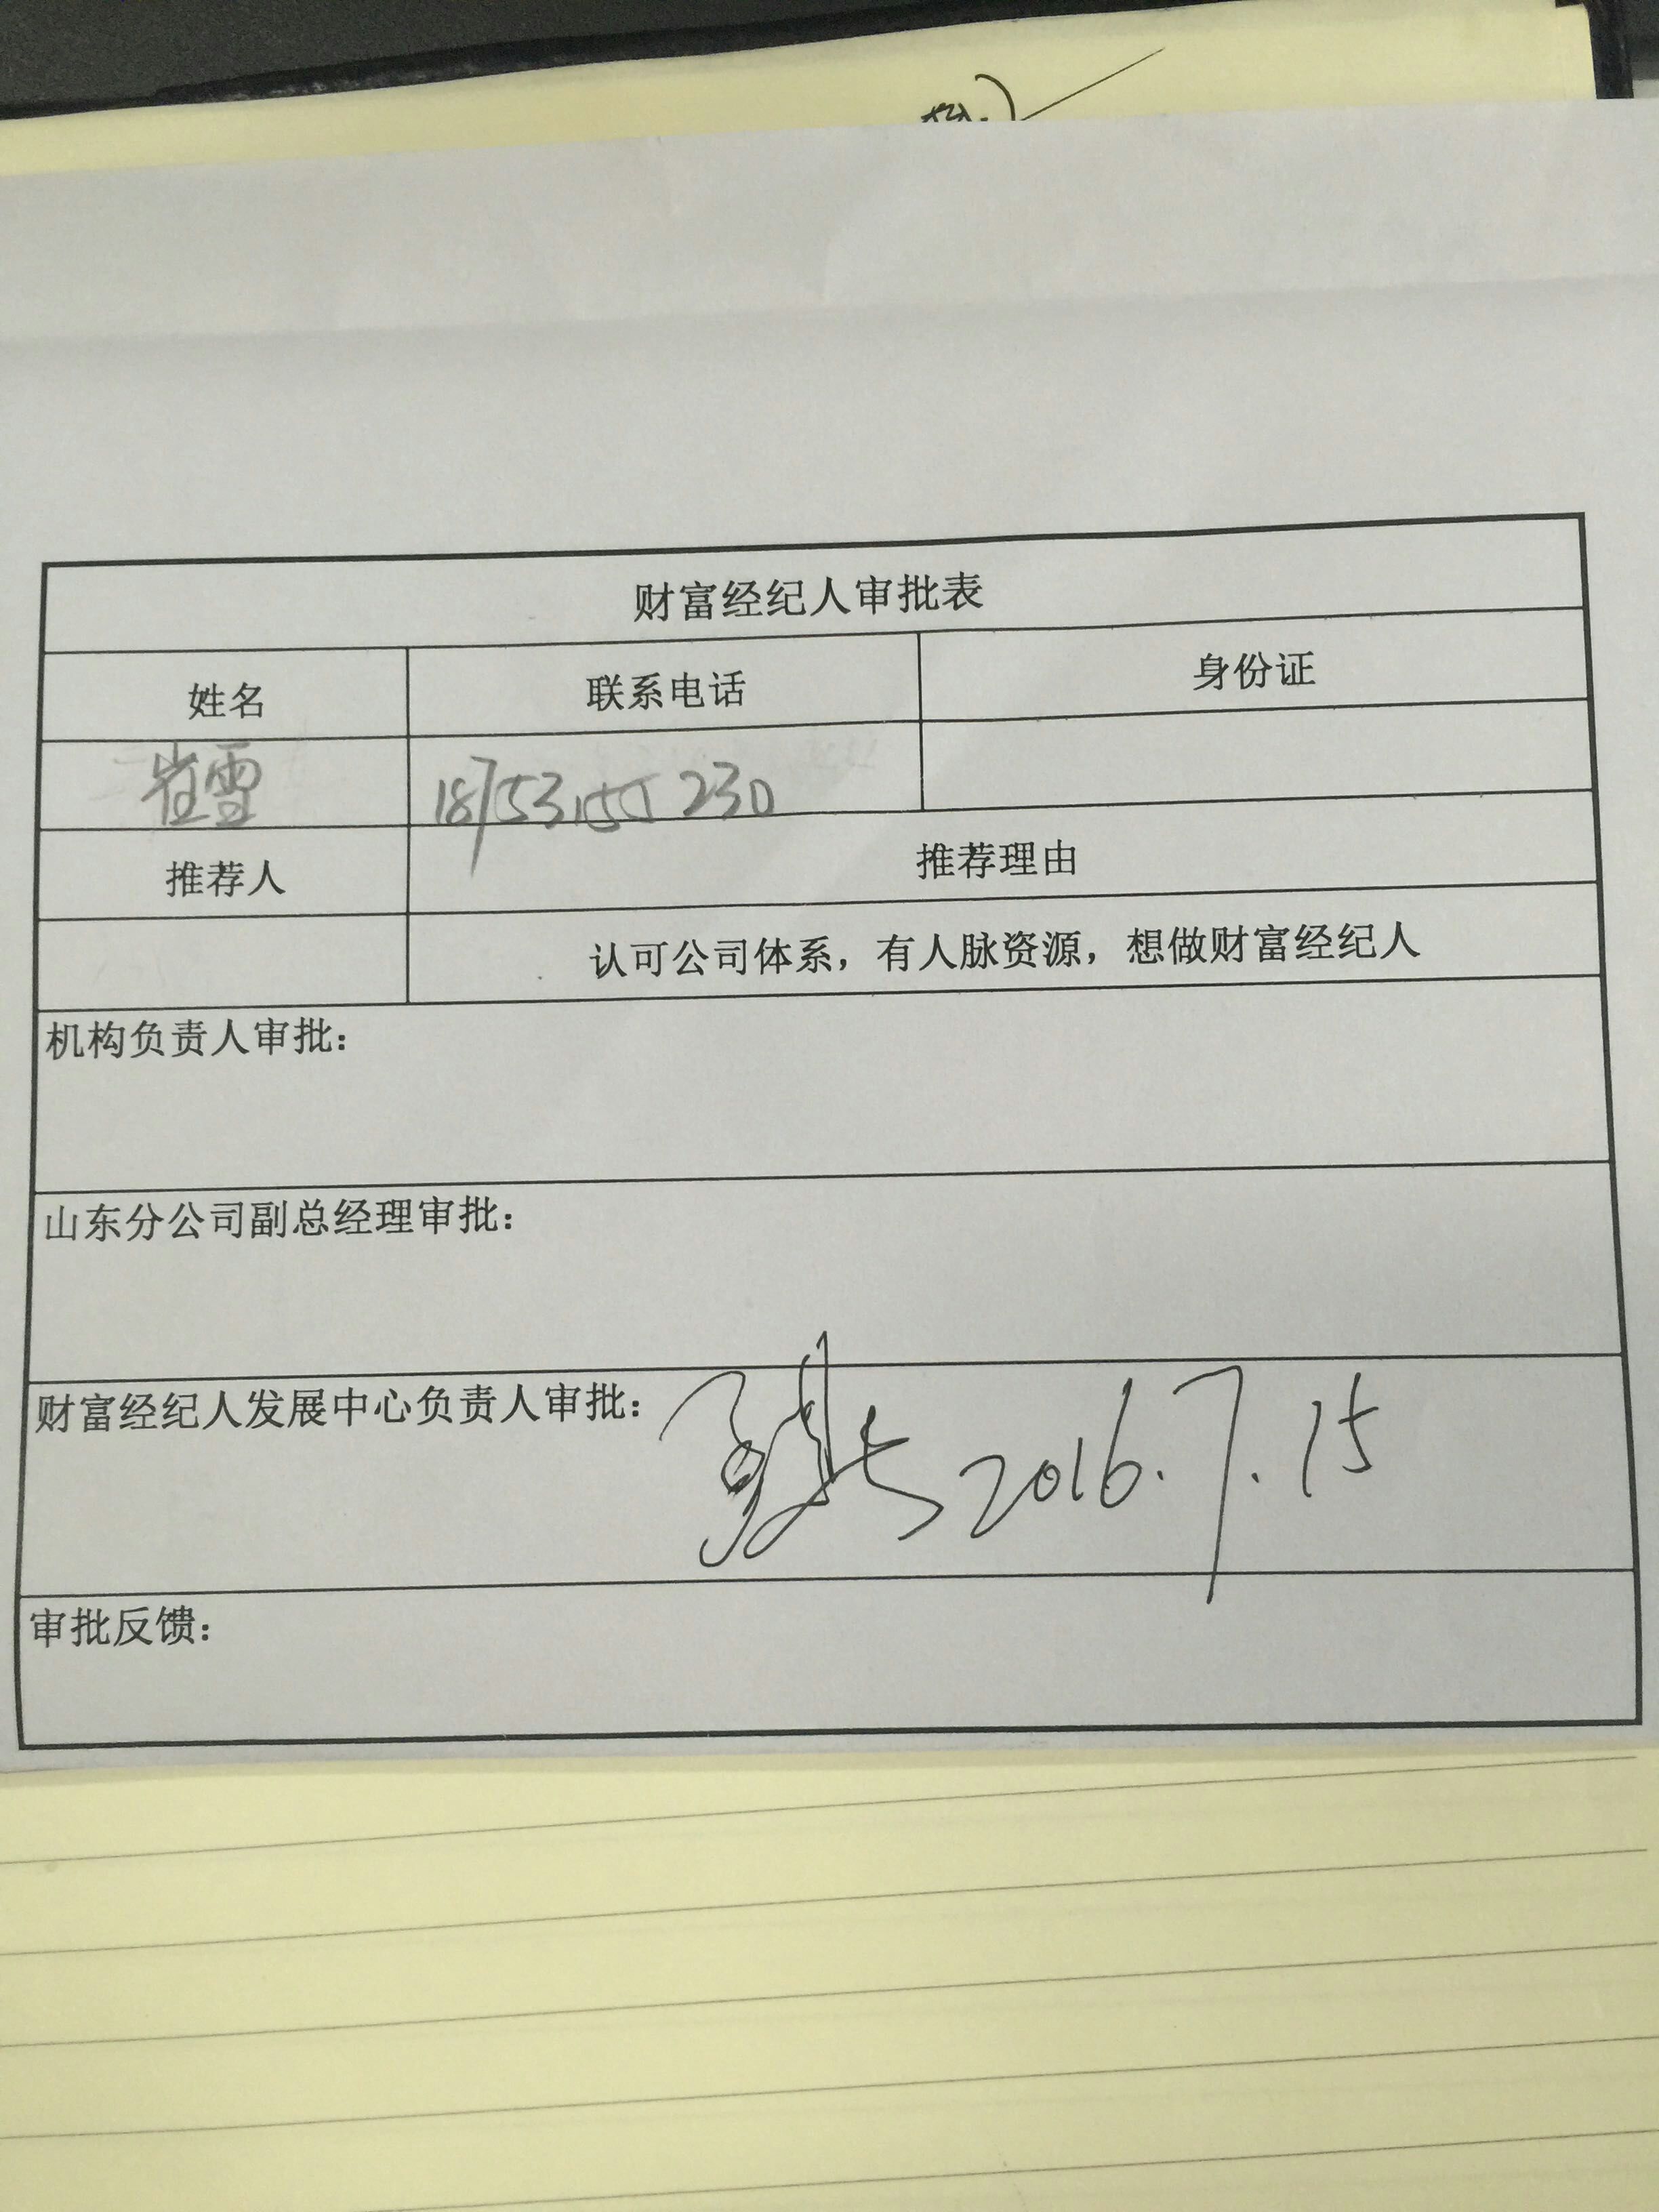 财富经纪人审批表
姓名 联系电话 身份证
崔雪 18753155230
推荐人 推荐理由
认可公司体系，有人脉资源，想做财富经纪人
机构负责人审批：
山东分公司副总经理审批：
财富经纪人发展中心负责人审批： 2016.7.15
审批反馈：